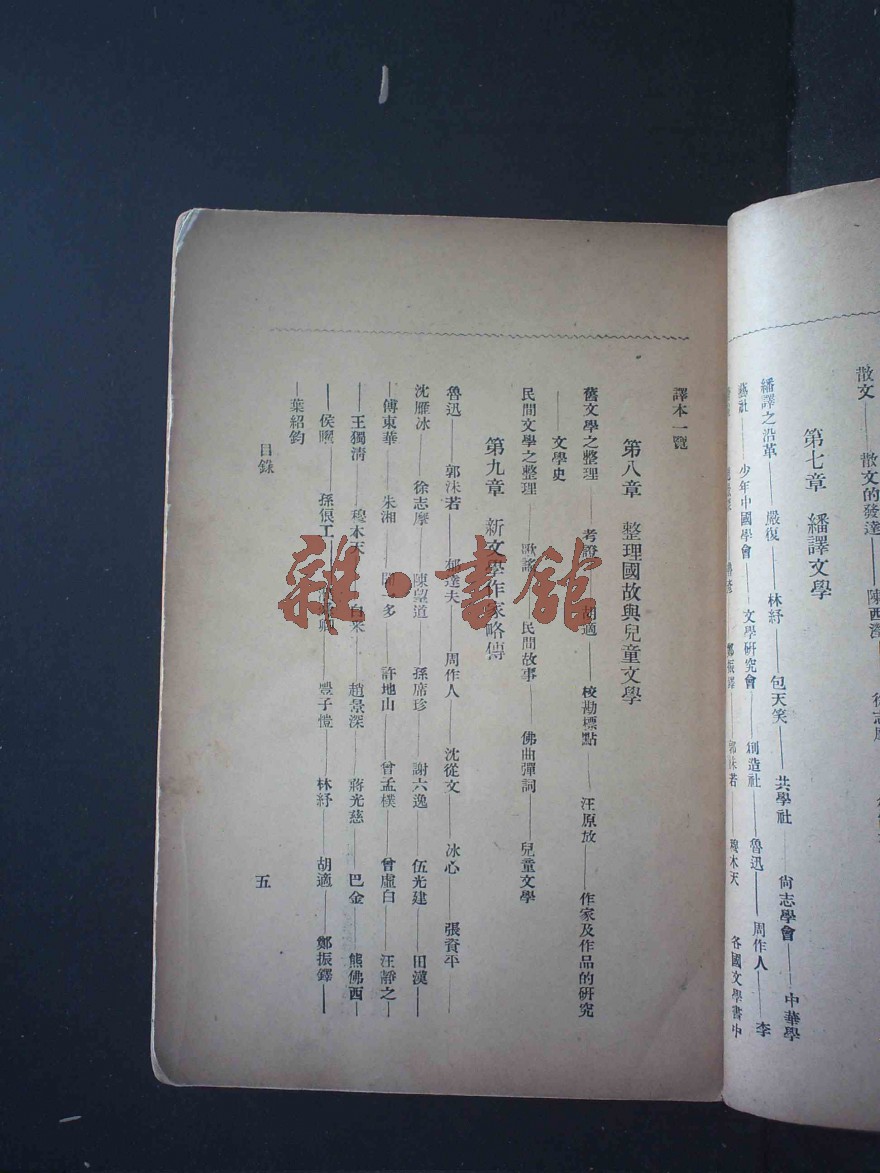 散文——散文的發達——陳西瀅
第七章　繙譯文學
繙譯之沿革——嚴復——林紓——包天笑——共學社——尚志學會——中華學
藝社——少年中國學會——文學研究會——創造社——魯迅——周作人——李
郭沫若　穆木天　各國文學書中
譯本一覽
第八章　整理國故與兒童文學
舊文學之整理——考證——胡適——校勘標點——汪原放——作家及作品的研究
——文學史
民間文學之整理——歌謠——民間故事——佛曲彈詞——兒童文學
第九章　新文學作家略傳
魯迅——郭沫若——郁達夫——周作人——沈從文——冰心——張資平
沈雁冰——徐志摩——陳望道——孫席珍——謝六逸——伍光建——田漢——
—傅東華——朱湘——多——許地山——曾孟樸——曾虛白——汪靜之—
——王獨清——穆木天——白采——趙景深——蔣光慈——巴金——熊佛西—
——侯曜——孫俍工——豐子愷——林紓——胡適——鄭振鐸——
—葉紹鈞
目錄
五
雜·書館